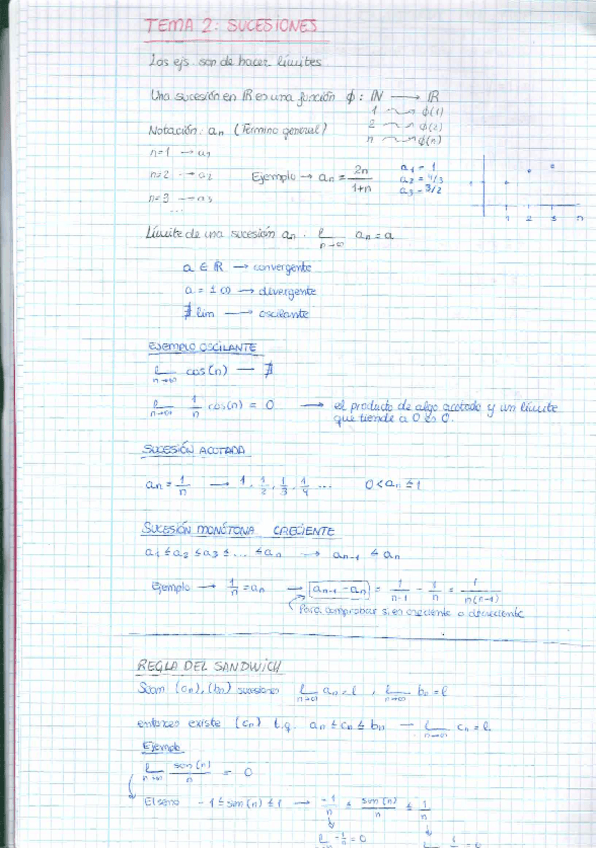 TEMA 2: SUCESIONES
Los ejs. son de hacer límites
Una sucesión en ℝ es una función ϕ: ℕ → ℝ
1 ⇝ ϕ(1)
2 ⇝ ϕ(2)
n ⇝ ϕ(n)
Notación: an (Termino general)
n=1 → a1
n=2 → a2
n=3 → n3
...
Ejemplo → an = 2n/1+n
a1 = 1
a2 = 4/3
a3 = 3/2
1 2 3 n
Límite de una sucesión an. L n→∞ an = a
a ∈ ℝ → convergente
a = ±∞ → divergente
∄ lim → oscilante
EJEMPLO OSCILANTE
L n→∞ cos(n) → ∄
L n→∞ 1/n cos(n) = 0 → el producto de algo acotado y un límite
que tiende a 0 es 0.
SUCESIÓN ACOTADA
an = 1/n → 1, 1/2, 1/3, 1/4 ... 0 < an ≤ 1
SUCESIÓN MONÓTONA CRECIENTE
a1 ≤ a2 ≤ a3 ≤ ... ≤ an → an-1 ≤ an
Ejemplo → 1/n = an → an-1 - an = 1/n-1 - 1/n = 1/n(n-1)
Para comprobar si es creciente o decreciente
REGLA DEL SANDWICH
Sean (an), (bn) sucesiones L n→∞ an = l, L n→∞ bn = l
entonces existe (cn) t.q. an ≤ cn ≤ bn → L n→∞ cn = l.
Ejemplo
L n→∞ sen(n)/n = 0
El seno -1 ≤ sin(n) ≤ 1 → -1/n ≤ sin(n)/n ≤ 1/n
L n→∞ -1/n = 0 L n→∞ 1/n = 0